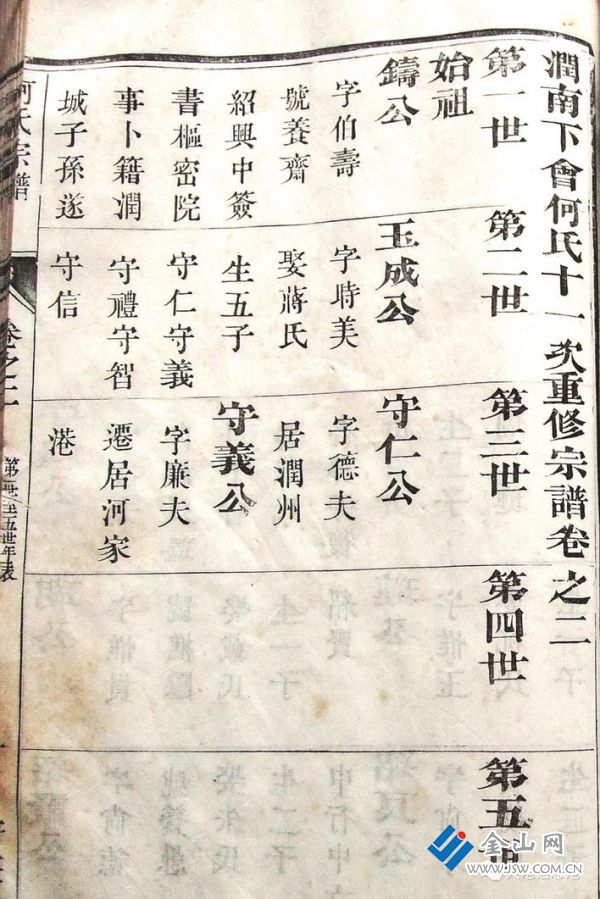 潤南下會何氏十一次重修宗譜卷之二
第一世
始祖
鑄公
字伯壽
號養齋
紹興中簽
書樞密院
事卜籍潤
城子孫遂
第二世
玉成公
字時美
娶蔣氏
生五子
守仁守義
守禮守智
守信
第三世
守仁公
字德夫
居潤州
守義公
字廉夫
遷居河家
港
第四世
第五世
何氏宗譜
卷之二
第一世至五世年表
金山网
www.jsw.com.cn